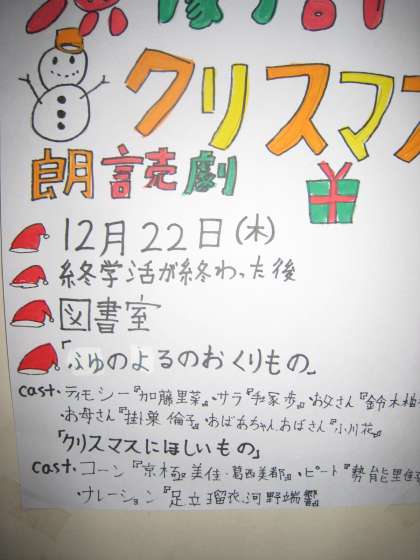 クリスマス
朗読劇
12月22日(木)
終学活が終わった後
図書室
「ふゆのよるのおくりもの」
cast・ティモシー『加藤里菜』・サラ『和家歩』・お父さん『鈴木
・お母さん『掛巣倫子』・おばあちゃん、おばさん『小川花』
「クリスマスにほしいもの」
cast・コーン『京極美佳・葛西美都』・ピート『勢能里佳
・ナレーション『足立瑠衣、河野端響』